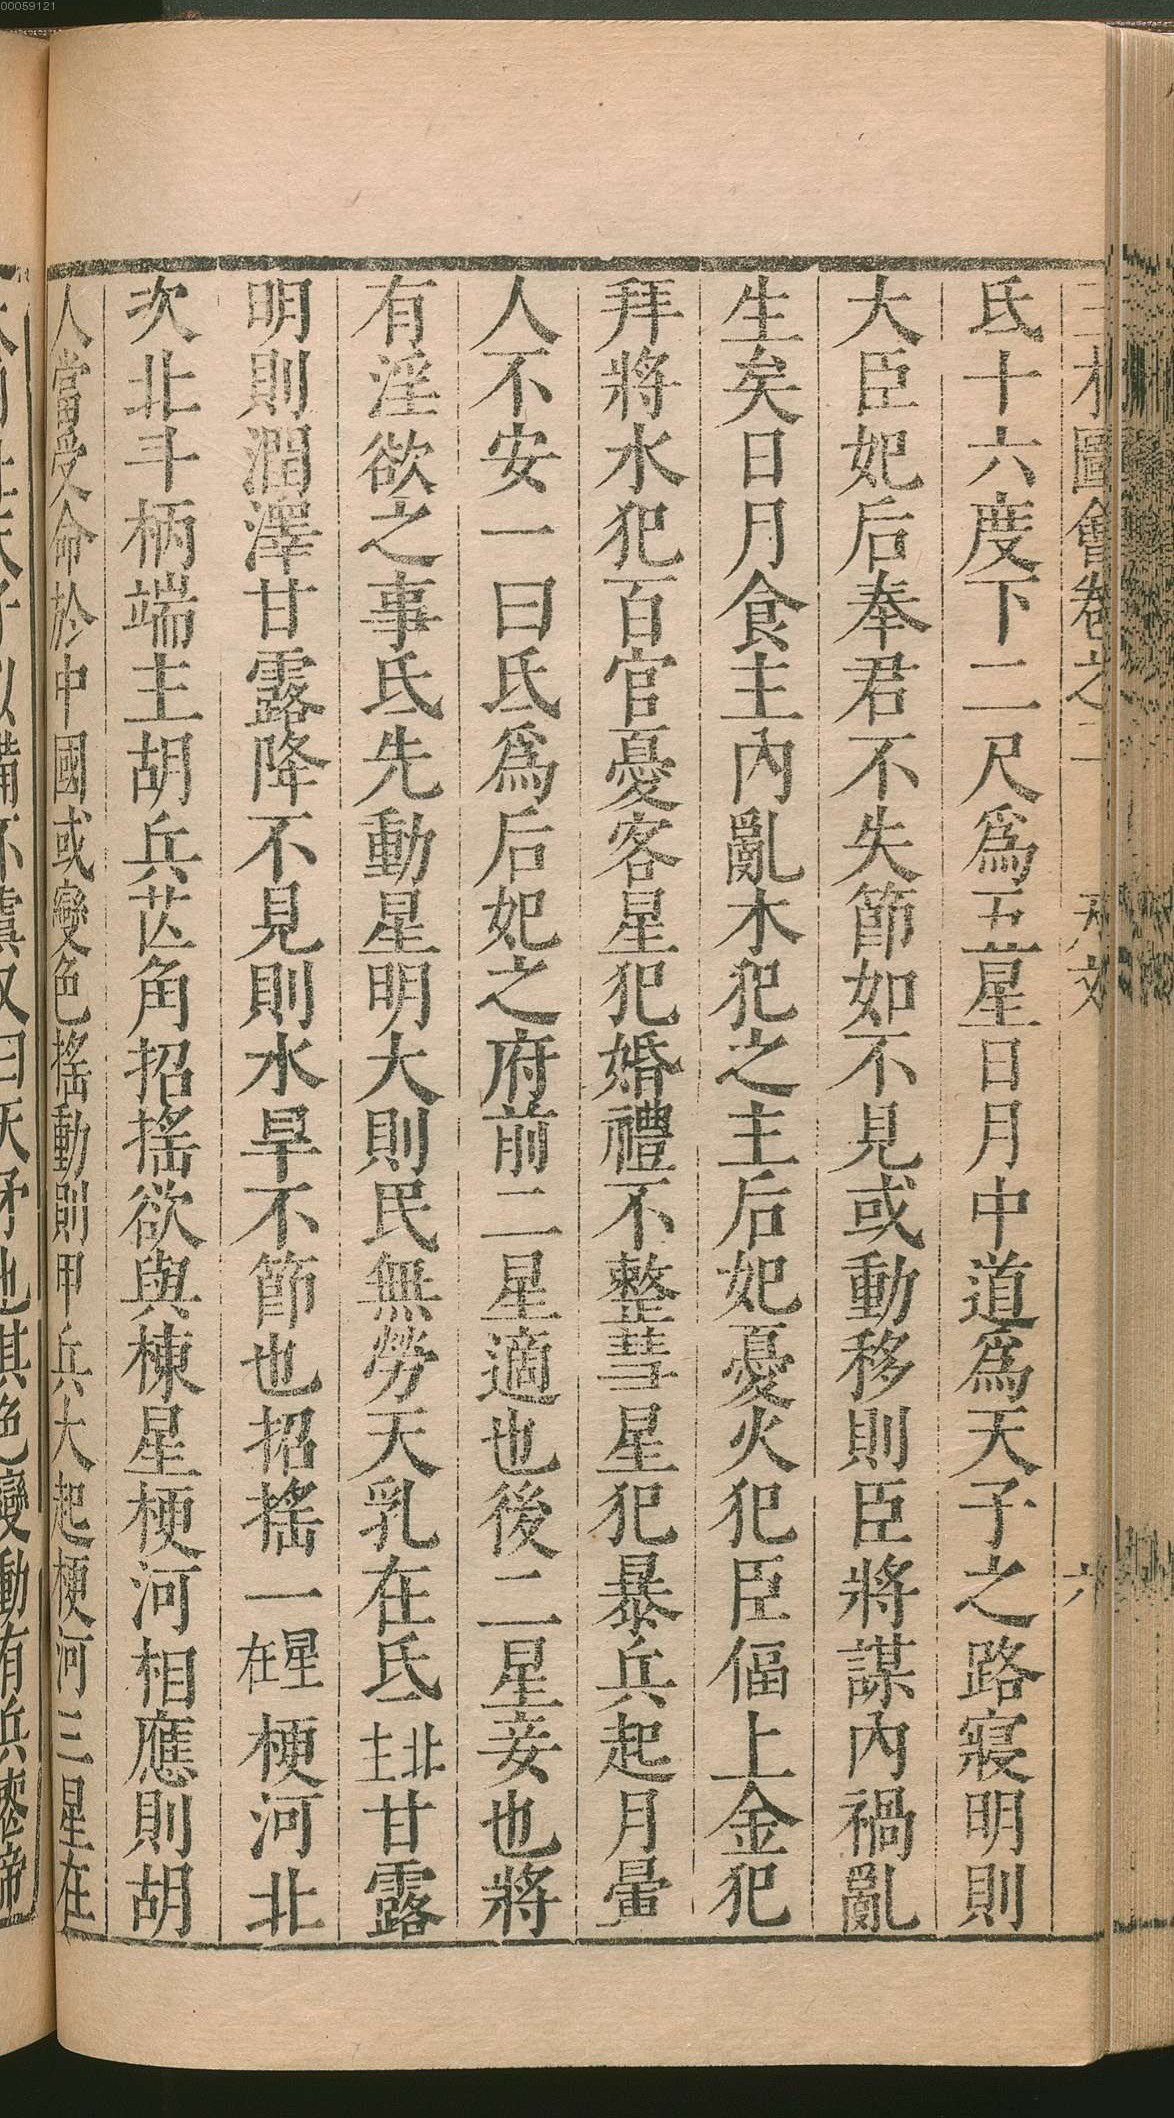 00059121
圖會卷之二 天文 六
氐十六度下二尺爲五星日月中道爲天子之路寢明則
大臣妃后奉君不失節如不見或動移則臣將謀內禍亂
生矣日月食主內亂木犯之主后妃憂火犯臣偪上金犯
拜將水犯百官憂客星犯婚禮不整彗星犯暴兵起月暈
人不安一曰氐爲后妃之府前二星適也後二星妾也將
有淫欲之事氐先動星明大則民無勞天乳在氐北主甘露
明則潤澤甘露降不見則水旱不節也招搖一星在梗河北
次北斗柄端主胡兵芒角招搖欲與棟星梗河相應則胡
人當受命於中國或變色搖動則甲兵大起梗河三星在
以備不虞又曰天矛也其色變動有兵喪帝